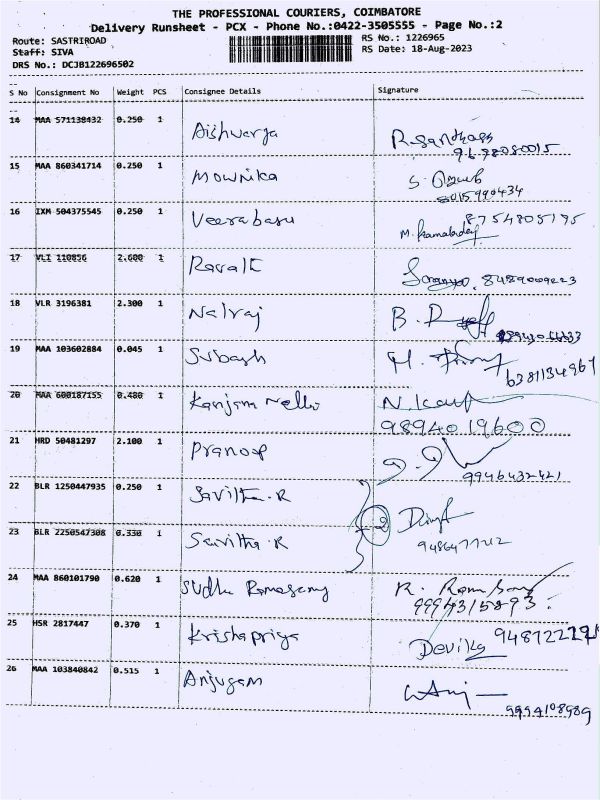 THE PROFESSIONAL COURIERS, COIMBATORE
Delivery Runsheet - PCX - Phone No.:0422-3505555 - Page No.:2
Route: SASTRIROAD RS No.: 1226965
Staff: SIVA RS Date: 18-Aug-2023
DRS No.: DCJB122696502
S No Consignment No Weight PCS Consignee Details Signature
14 MAA 571138432 0.250 1 Aishwarya
15 MAA 860341714 0.250 1 Mownika
8015990434
16 IXM 504375545 0.250 1 Veerabasu 8754805195
17 VLI 110856 2.600 1
18 VLR 3196381 2.300 1 Nalraj
19 MAA 103602884 0.045 1 Subash
6381134967
20 MAA 600187155 0.480 1 N.
9894019600
21 HRD 50481297 2.100 1 Pranoop
9946432421
22 BLR 1250447935 0.250 1 Savitha.R
2
23 BLR 2250547308 0.330 1 Savitha.R
24 MAA 860101790 0.620 1 Sudha Ramasamy R.
9994315893
25 HSR 2817447 0.370 1 Krishapriya Devika
26 MAA 103840842 0.515 1 Anjugam
9994108989